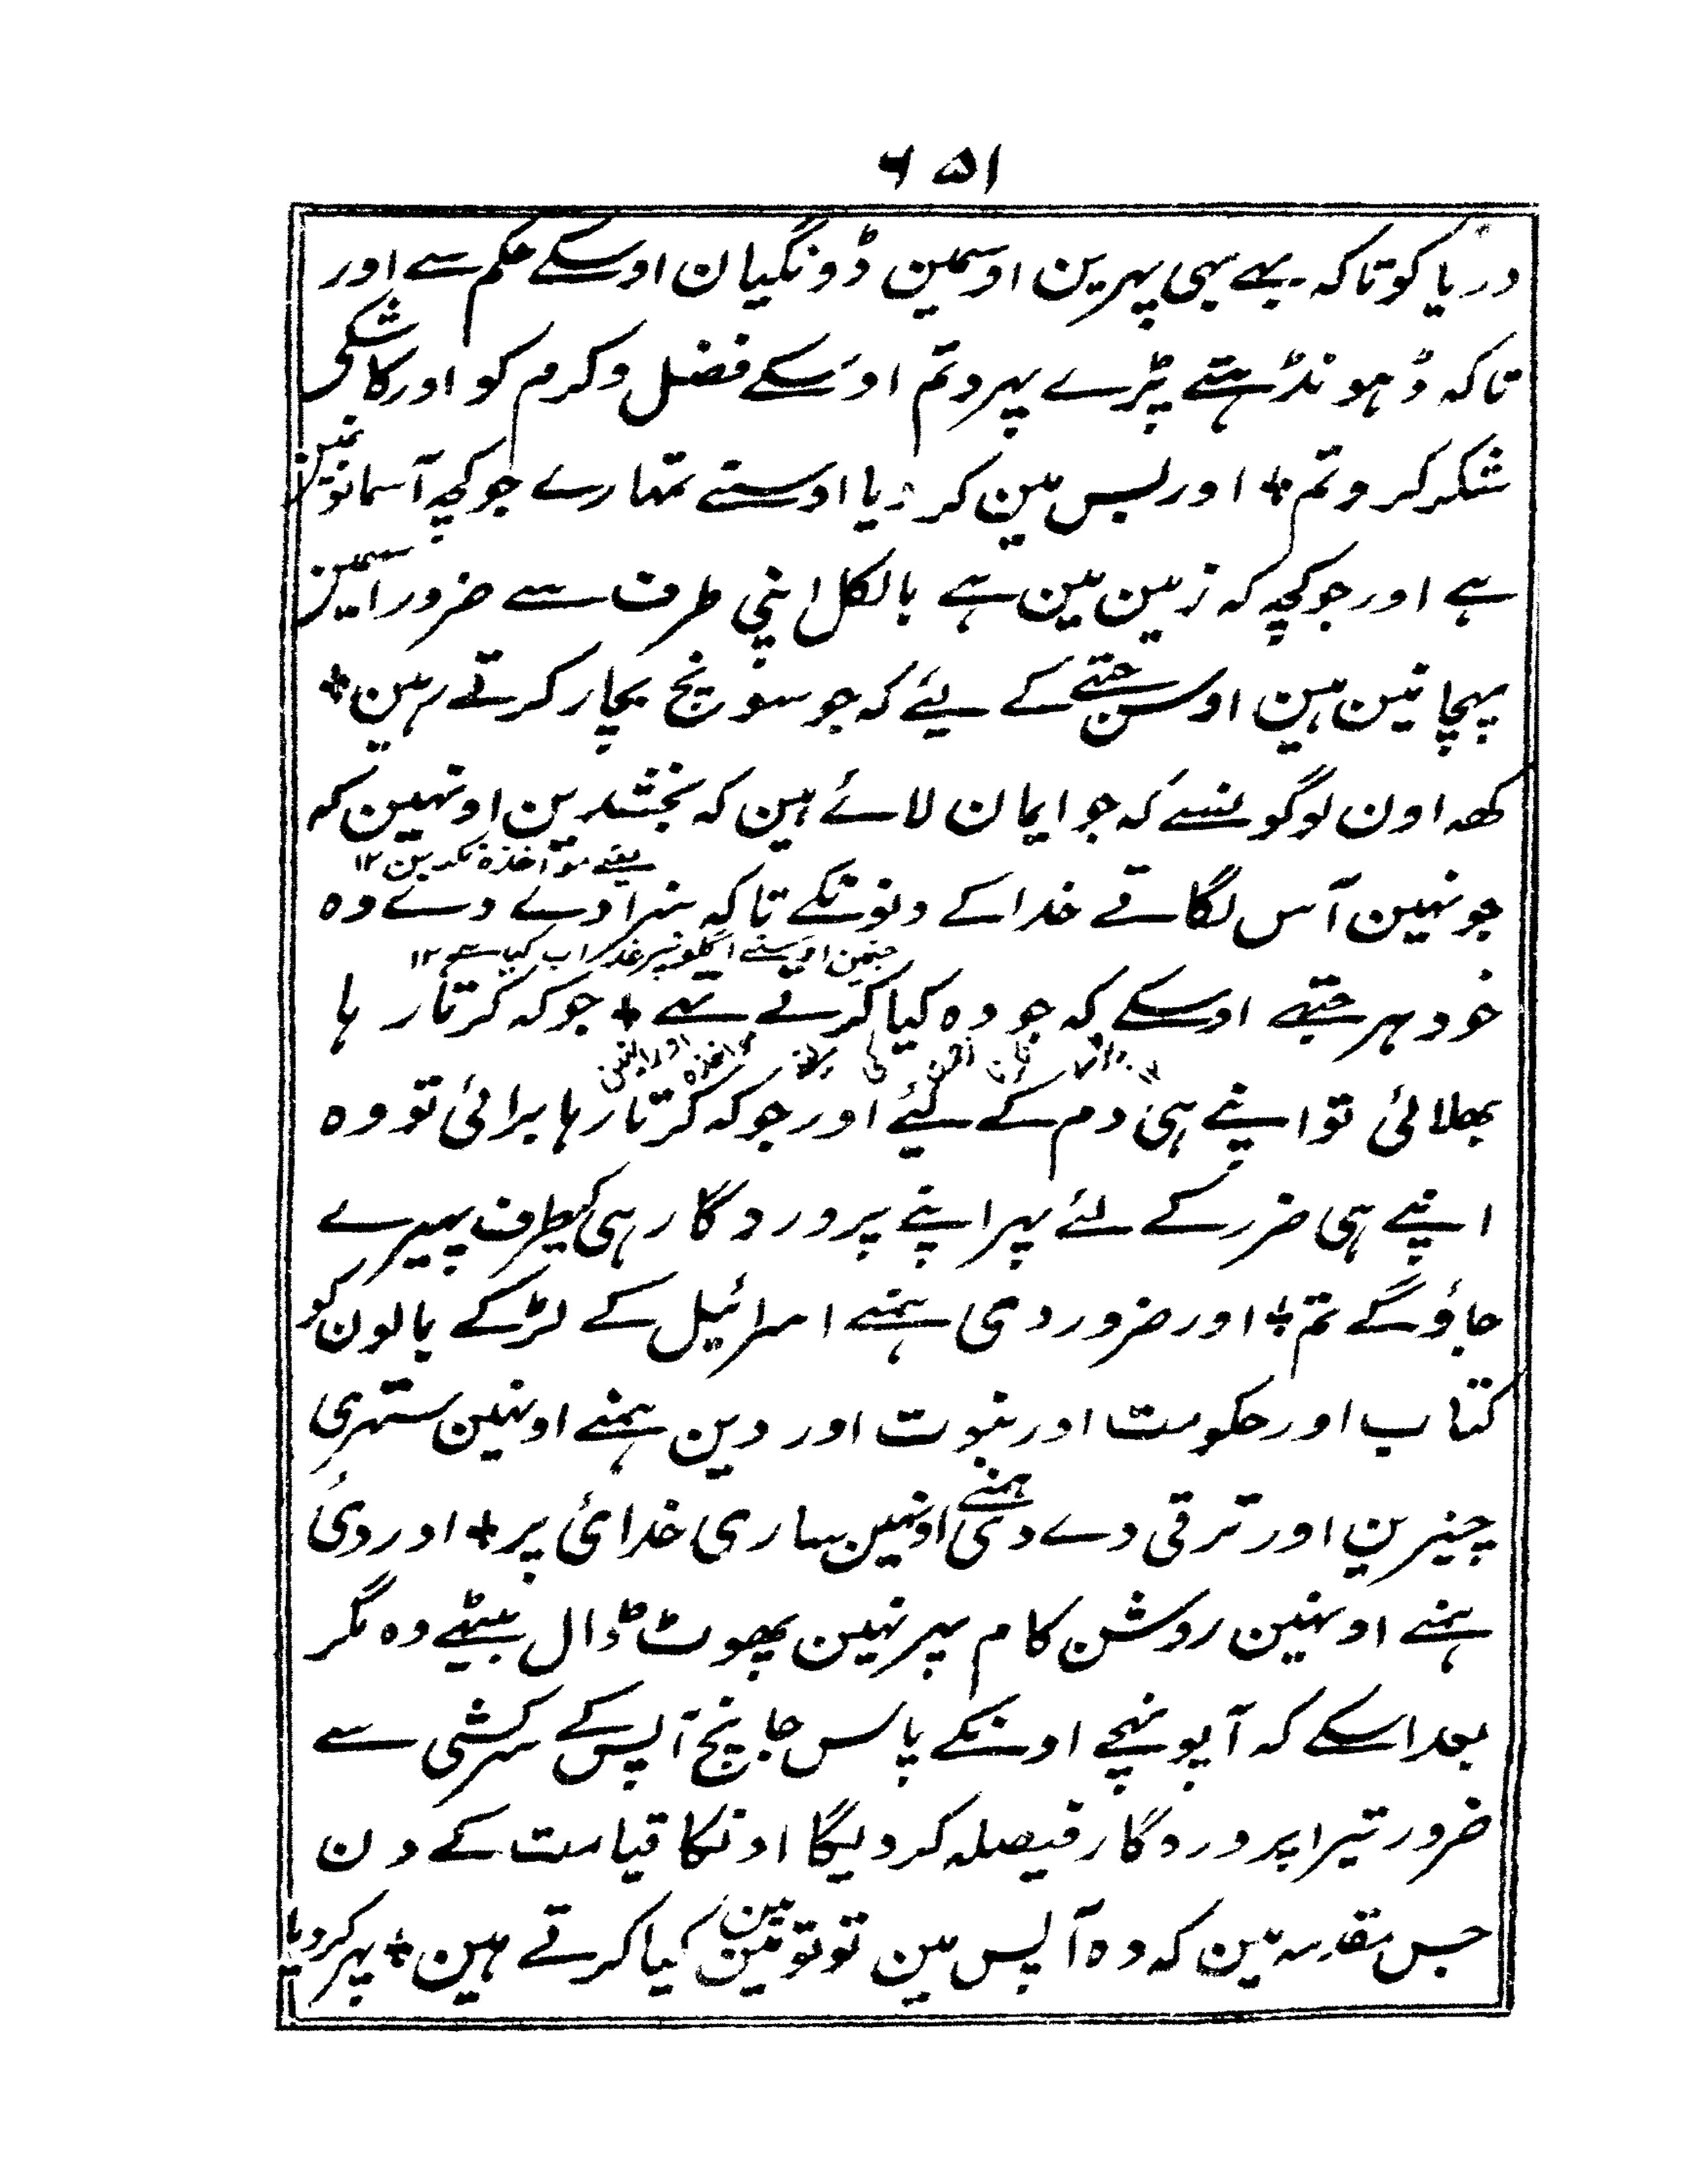 ۶۵۱
دریا کو تاکہ بہے بہی پہرین اوسمین ڈونگیان اوسکے حکم سے اور
تاکہ ڈہونڈہتے پڑے پہرو تم اوسکے فضل وکرم کو اور کاشکی
شکر کرو تم + اور لبس مین کر دیا اوسنے تمہارے جو کچہ آسمانونمین
ہے اور جو کچہ کہ زمین مین ہے بالکل اپنی طرف سے ضرور اسمین
پہچانین ہین اوس جتھے کے لیے کہ جو سونچ بچار کرتے رہین +
کھہ اون لوگونسے کہ جو ایمان لائے ہین کہ بخشدین اونہین کہ
یعنے مواخذہ نکرین ۱۲
جو نہین آس لگاتے خدا کے دنونکے تاکہ سزا دے دے وہ
جنمین اوسنے اگلونپر عذاب کیا ہے ۱۲
خود ہر جتھے اوسکے کہ جو وہ کیا کرتے تہے + جو کہ کرتا رہا
بھلائی تو اپنے ہی دم کے لیے اور جو کہ کرتا رہا برائی تو وہ
اپنے ہی ضرر کے لئے پہر اپنے پروردگار ہی کیطرف پہیرے
جاؤ گے تم + اور ضرور دی ہمنے اسرائیل کے لڑکے بالون کو
کتاب اور حکومت اور نبوت اور دین ہمنے اونہین ستہری
چیزین اور ترقی دے دی ہمنے اونہین ساری خدائی پر + اور دی
ہمنے اونہین روشن کام پہر نہین پھوٹ ڈال بیٹھے وہ مگر
بعد اسکے کہ آپونہچے اونکے پاس جانچ آپس کے سرکشی سے
ضرور تیرا پروردگار فیصلہ کر دیگا اونکا قیامت کے دن
جس مقدمہ مین کہ وہ آپس مین توتومین مین کیا کرتے ہین + پہر کر دیا